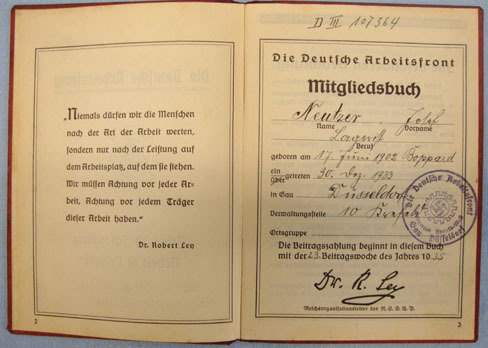 „Niemals dürfen wir die Menschen
nach der Art der Arbeit werten,
sondern nur nach der Leistung auf
dem Arbeitsplatz, auf dem sie stehen.
Wir müssen Achtung vor jeder Ar-
beit, Achtung vor jedem Träger
dieser Arbeit haben."
Dr. Robert Ley
2
D III 107364
Die Deutsche Arbeitsfront
Mitgliedsbuch
Josef
Name Vorname
Beruf
geboren am 17. Juni 1902 Boppard
ein
über getreten 30. Dez. 1933
in Gau Düsseldorf
Verwaltungsstelle 10
Ortsgruppe
Die Beitragszahlung beginnt in diesem Buch
mit der 23. Beitragswoche des Jahres 1935
Dr. R. Ley
Reichsorganisationsleiter der N.S.D.A.P.
3
Die Deutsche Arbeitsfront
Gau Düsseldorf